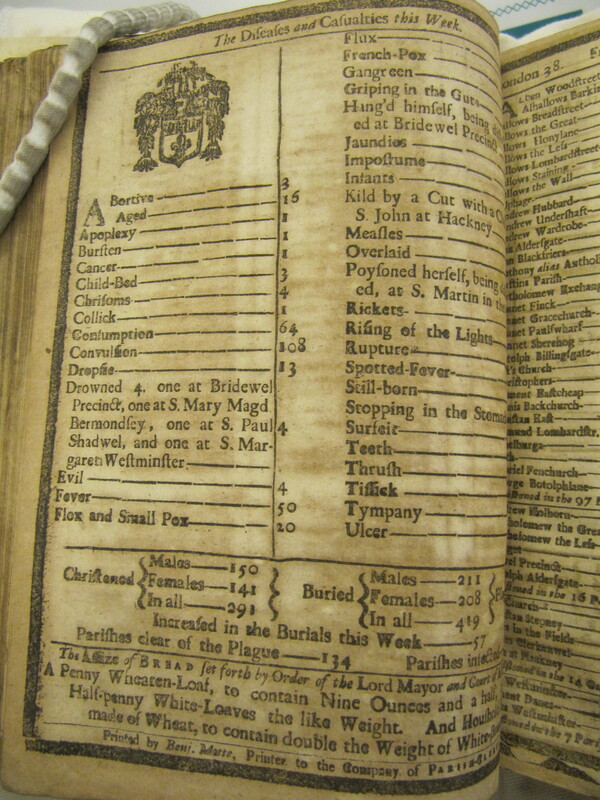 The Diseases and Casualties this Week.
Abortive 3
Aged 16
Apoplexy 1
Bursten 1
Cancer 1
Child-Bed 3
Chrisoms 4
Collick 1
Consumption 64
Convulsion 108
Dropsie 13
Drowned 4, one at Bridewel
Precinct, one at S. Mary Magd
Bermondsey, one at S. Paul 4
Shadwel, and one at S. Mar-
garen Westminster
Evil 4
Fever 50
Flox and Small Pox 20
Flux
French-Pox
Gangreen
Griping in the Guts
Hang'd himself, being
ed at Bridewel Precinct
Jaundies
Impostume
Infants
Kild by a Cut with a
S. John at Hackney
Measles
Overlaid
Poysoned herself, being
ed, at S. Martin in the
Rickets
Rising of the Lights
Rupture
Spotted-Fever
Still-born
Stopping in the
Surfeit
Teeth
Thrush
Tissick
Tympany
Ulcer
Christened { Males 150
Females 141
In all 291 }
Buried { Males 211
Females 208
In all 419 }
Increased in the Burials this Week 57
Parishes clear of the Plague 134 Parishes
The Assize of BREAD set forth by Order of the Lord Mayor and Court of
A Penny Wheaten-Loaf, to contain Nine Ounces and a half,
Half-penny White-Loaves the like Weight. And
made of Wheat, to contain double the Weight of White
Printed by Benj. Motte, Printer to the Company of
ondon 38.
Woodstreet
Alhallows Barkin
llows Breadstreet
llows the Great
llows Honylane
llows the Less
llows Lombardstreet
llows Staining
llows the Wall
drew Hubbard
drew Undershaft
drew Wardrobe
Aldersgate
Blackfriers
thony alias
stins Parish
tholomew Exchang
net Finck
net Gracechurch
net Paulswharf
net Sherehog
tolph Billingsgate
's Church
ristophers
ment Eastcheap
nis Backchurch
nstan East
mund Lombardstr.
riel Fenchurch
rge Botolphlane
in the 97
ew Holborn
tholomew the Great
tholomew the Less
el Precinct
lph Aldersgate
in the 16
in the Fields
at Hackney
in the 14